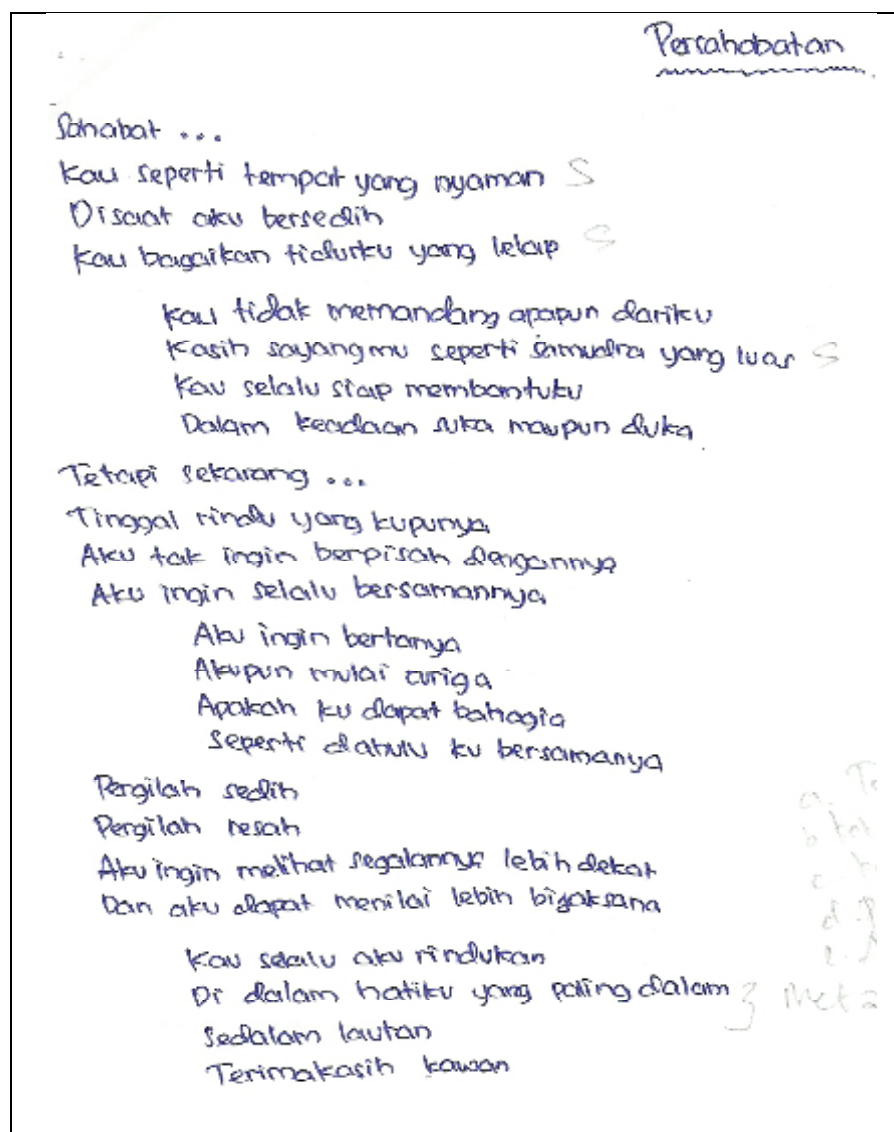 Persahabatan
Sahabat ...
Kau seperti tempat yang nyaman S
Disaat aku bersedih
Kau bagaikan tidurku yang lelap S
Kau tidak memandang apapun dariku
Kasih sayangmu seperti samudra yang luas S
Kau selalu siap membantuku
Dalam keadaan suka maupun duka
Tetapi sekarang ...
Tinggal rindu yang kupunya
Aku tak ingin berpisah dengannya
Aku ingin selalu bersamannya
Aku ingin bertanya
Akupun mulai curiga
Apakah ku dapat bahagia
Seperti dahulu ku bersamanya
Pergilah sedih
Pergilah resah
Aku ingin melihat segalannya lebih dekat
Dan aku dapat menilai lebih bijaksana
Kau selalu aku rindukan
Di dalam hatiku yang paling dalam
Sedalam lautan
Terimakasih kawan
a.
b
c.
d.